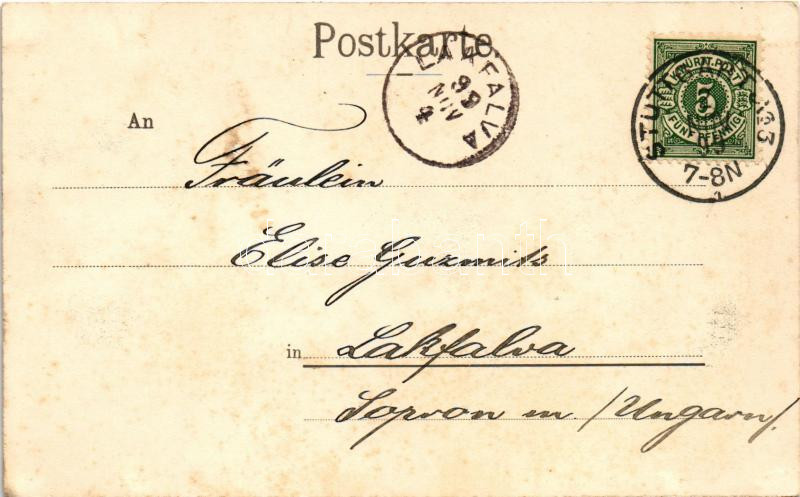 Postkarte
LAKFALVA
99
NOV
4
K. WÜRTT. POST
5
FÜNF PFENNIG
STUTTGART №3
99
7-8N
An Fräulein
Elise Guzmits
in Lakfalva
Sopron m. /Ungarn/.